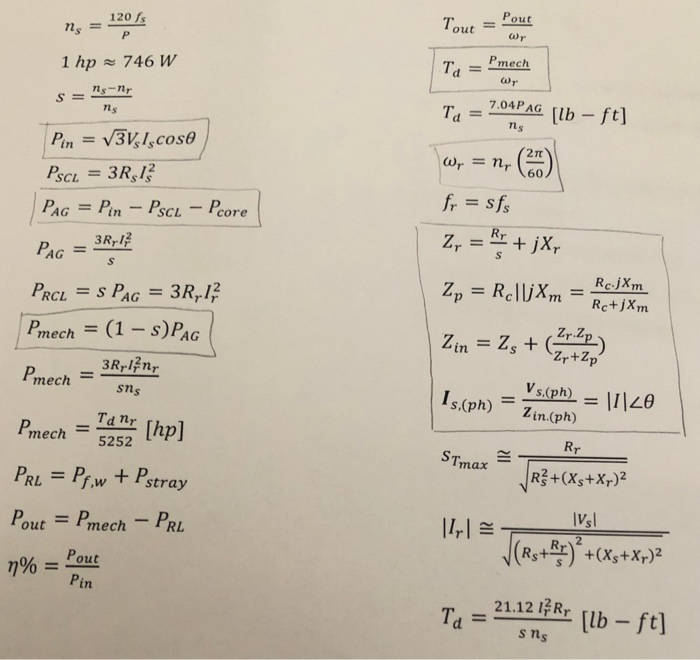 n_s = 120 f_s / P
1 hp ≈ 746 W
s = n_s−n_r / n_s
P_in = √3V_sI_scosθ
P_SCL = 3R_sI_s^2
P_AG = P_in − P_SCL − P_core
P_AG = 3R_rI_r^2 / s
P_RCL = s P_AG = 3R_rI_r^2
P_mech = (1 − s)P_AG
P_mech = 3R_rI_r^2n_r / sn_s
P_mech = T_d n_r / 5252 [hp]
P_RL = P_f,w + P_stray
P_out = P_mech − P_RL
η% = P_out / P_in
T_out = P_out / ω_r
T_d = P_mech / ω_r
T_d = 7.04P_AG / n_s [lb − ft]
ω_r = n_r (2π / 60)
f_r = sf_s
Z_r = R_r / s + jX_r
Z_p = R_c||jX_m = R_c.jX_m / R_c+jX_m
Z_in = Z_s + (Z_r.Z_p / Z_r+Z_p)
I_s,(ph) = V_s,(ph) / Z_in.(ph) = |I|∠θ
s_Tmax ≅ R_r / √(R_s^2+(X_s+X_r)^2)
|I_r| ≅ |V_s| / √((R_s+R_r/s)^2+(X_s+X_r)^2)
T_d = 21.12 I_r^2R_r / s n_s [lb − ft]